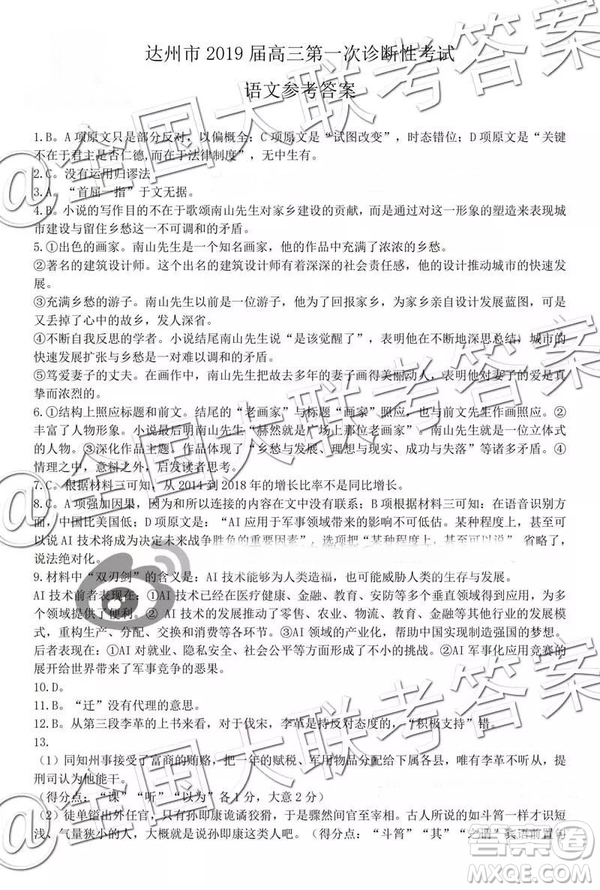 达州市 2019 届高三第一次诊断性考试
语文参考答案
1.B。A项原文只是部分反对，以偏概全；C项原文是“试图改变”，时态错位；D项原文是“关键
不在于君主是否仁德，而在于法律制度”，无中生有。
2.C。没有运用归谬法
3.A。“首屈一指”于文无据。
4.B。小说的写作目的不在于歌颂南山先生对家乡建设的贡献，而是通过对这一形象的塑造来表现城
市建设与留住乡愁这一不可调和的矛盾。
5.①出色的画家。南山先生是一个知名画家，他的作品中充满了浓浓的乡愁。
②著名的建筑设计师。这个名的建筑设计师有着深深的社会责任感，他的设计推动城市的快速发
展。
③充满乡愁的游子。南山先生以前是一位游子，他为了改变家乡，亲自设计发展蓝图，可是，又
丢掉了心中的故乡，发人深省。
④不断自我反思的学者。小说结尾南山先生“是该觉醒了”，表明他在不断地深思日后城市的
快速发展扩张与乡愁是一对难以调和的矛盾。
⑤笃爱妻子的丈夫。在画作中，南山先生把多年前的妻子画得美丽动人，表现他对妻子的爱是真
挚而浓烈的。
6.①结构上照应标题和前文。结尾的“老画家”与标题“画家”照应，也与前文先生作画照应。②
丰富了人物形象。小说最后明南山先生“赫然就是广场上那位老画家”，丰富了南山先生老画家
的形象。③深化作品主题。作品体现了“失与得、理想与现实、成功与失落”等诸多矛盾。④
情理之中，意料之外，启发读者思考。
7.C。根据材料三可知，从 2014 到 2018 年的增长比率不是同比增长。
8.C。A项强加因果，因为和所以连接的内容在文中没有联系；B项根据材料三可知：在语音识别方
面，中国比美国低；D项原文是：“AI应用于军事领域带来的影响不可低估。某种程度上，甚至可
以说 AI 技术将成为决定未来战争胜负的重要因素”，选项把“某种程度上，甚至可以说” 省略了，
说法绝对化。
9.材料中“双刃剑”的含义是：AI技术能够为人类造福，也可能威胁人类的生存与发展。
AI技术前者表现在：①AI技术已经在医疗健康、金融、教育、安防等多个垂直领域得到应用，为多
个领域提供了便利。②AI技术的发展推动了零售、农业、物流、教育、金融等其他行业的发展模
式，重构生产、分配、交换、消费等经济活动各环节。③AI 技术发展有利于掌握军事主动权。
后者表现在：①AI对就业、隐私安全、社会公平等方方面面的影响。②AI 在军事领域应用竞赛的
展开给世界带来了军事竞争的恶果。
10.D。
11.B。“迁”没有代理的意思。
12.B。从第三段李革的上书来看，对于伐宋，李革是持反对态度的，“积极支持”错。
13.
（1）同知州事接受了富商的贿赂，把一年的赋税、军用物品分配给下属各县，唯有李革不听从，提
刑司认为他能干。
（得分点：“课”“听”“以为”各1分，大意2分）
（2）徒单镒出外任官，只有孙即康仍然诡谲狡猾，于是突然显贵。古人所说的如斗筲一样才识短
浅、气量狭小的人，大概说的就是孙即康这类人吧。（得分点：“斗筲”“其”
@全国大联考答案